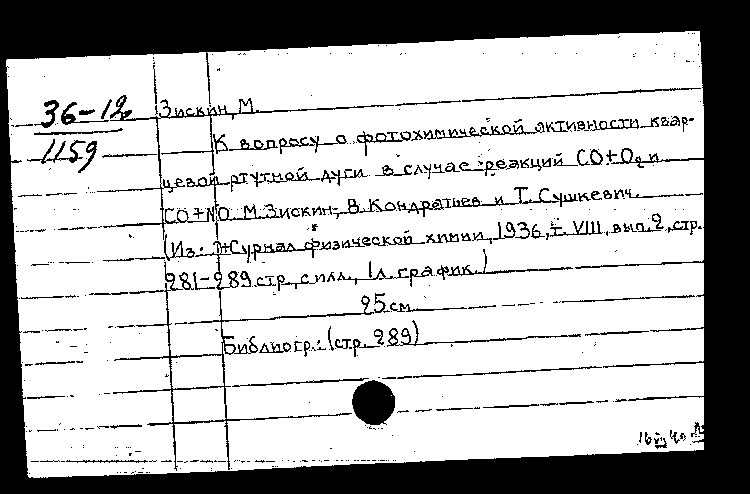 36-12
1159
Зискин, М.
К вопросу о фотохимической активности квар-
цевой ртутной дуги в случае реакций CO+O₂ и
CO+NO. М. Зискин, В. Кондратьев и Т. Сушкевич.
(Из: "Журнал физической химии", 1936, т. VIII, вып. 2, стр.
281-289 стр., с илл., 1 л. график.)
25 см
Библиогр.: (стр. 289)